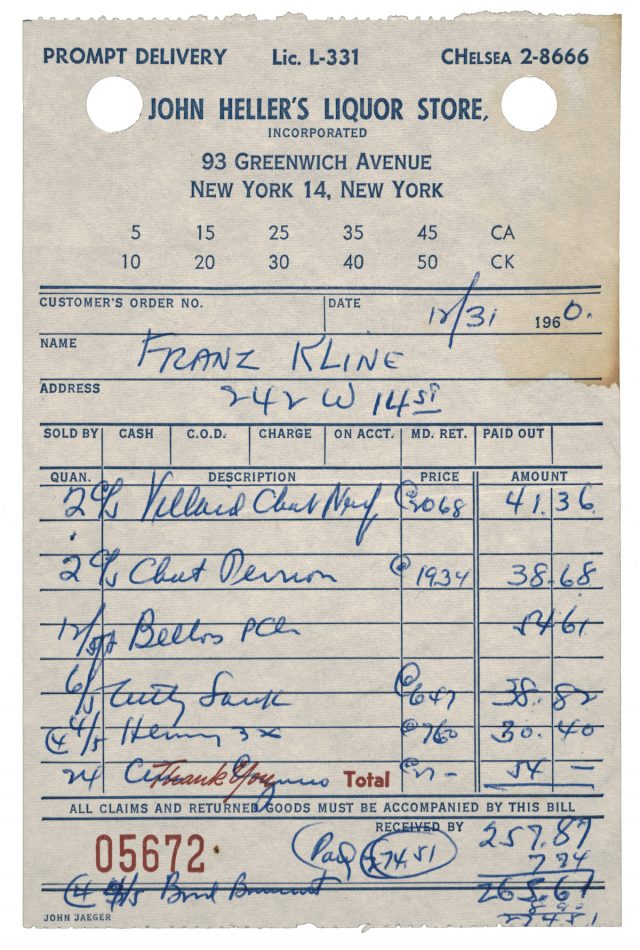 PROMPT DELIVERY Lic. L-331 CHELSEA 2-8666
JOHN HELLER'S LIQUOR STORE,
INCORPORATED
93 GREENWICH AVENUE
NEW YORK 14, NEW YORK
5 15 25 35 45 CA
10 20 30 40 50 CK
CUSTOMER'S ORDER NO. DATE 12/31 1960.
NAME FRANZ KLINE
ADDRESS 242 W 14 ST
SOLD BY CASH C.O.D. CHARGE ON ACCT. MD. RET. PAID OUT
QUAN. DESCRIPTION PRICE AMOUNT
2 c/s Chat Neuf @ 2068 41.36
2 c/s Chat @ 1934 38.68
12/ Bellows 54 61
6/5 Cutty Sark @ 647 38.82
4/5 Henn 3x @ 760 30.40
24 Thank You Total @ 2 - 54 -
ALL CLAIMS AND RETURNED GOODS MUST BE ACCOMPANIED BY THIS BILL
RECEIVED BY 257.87
05672 274.51 7 74
4 4/5 265.61
JOHN JAEGER